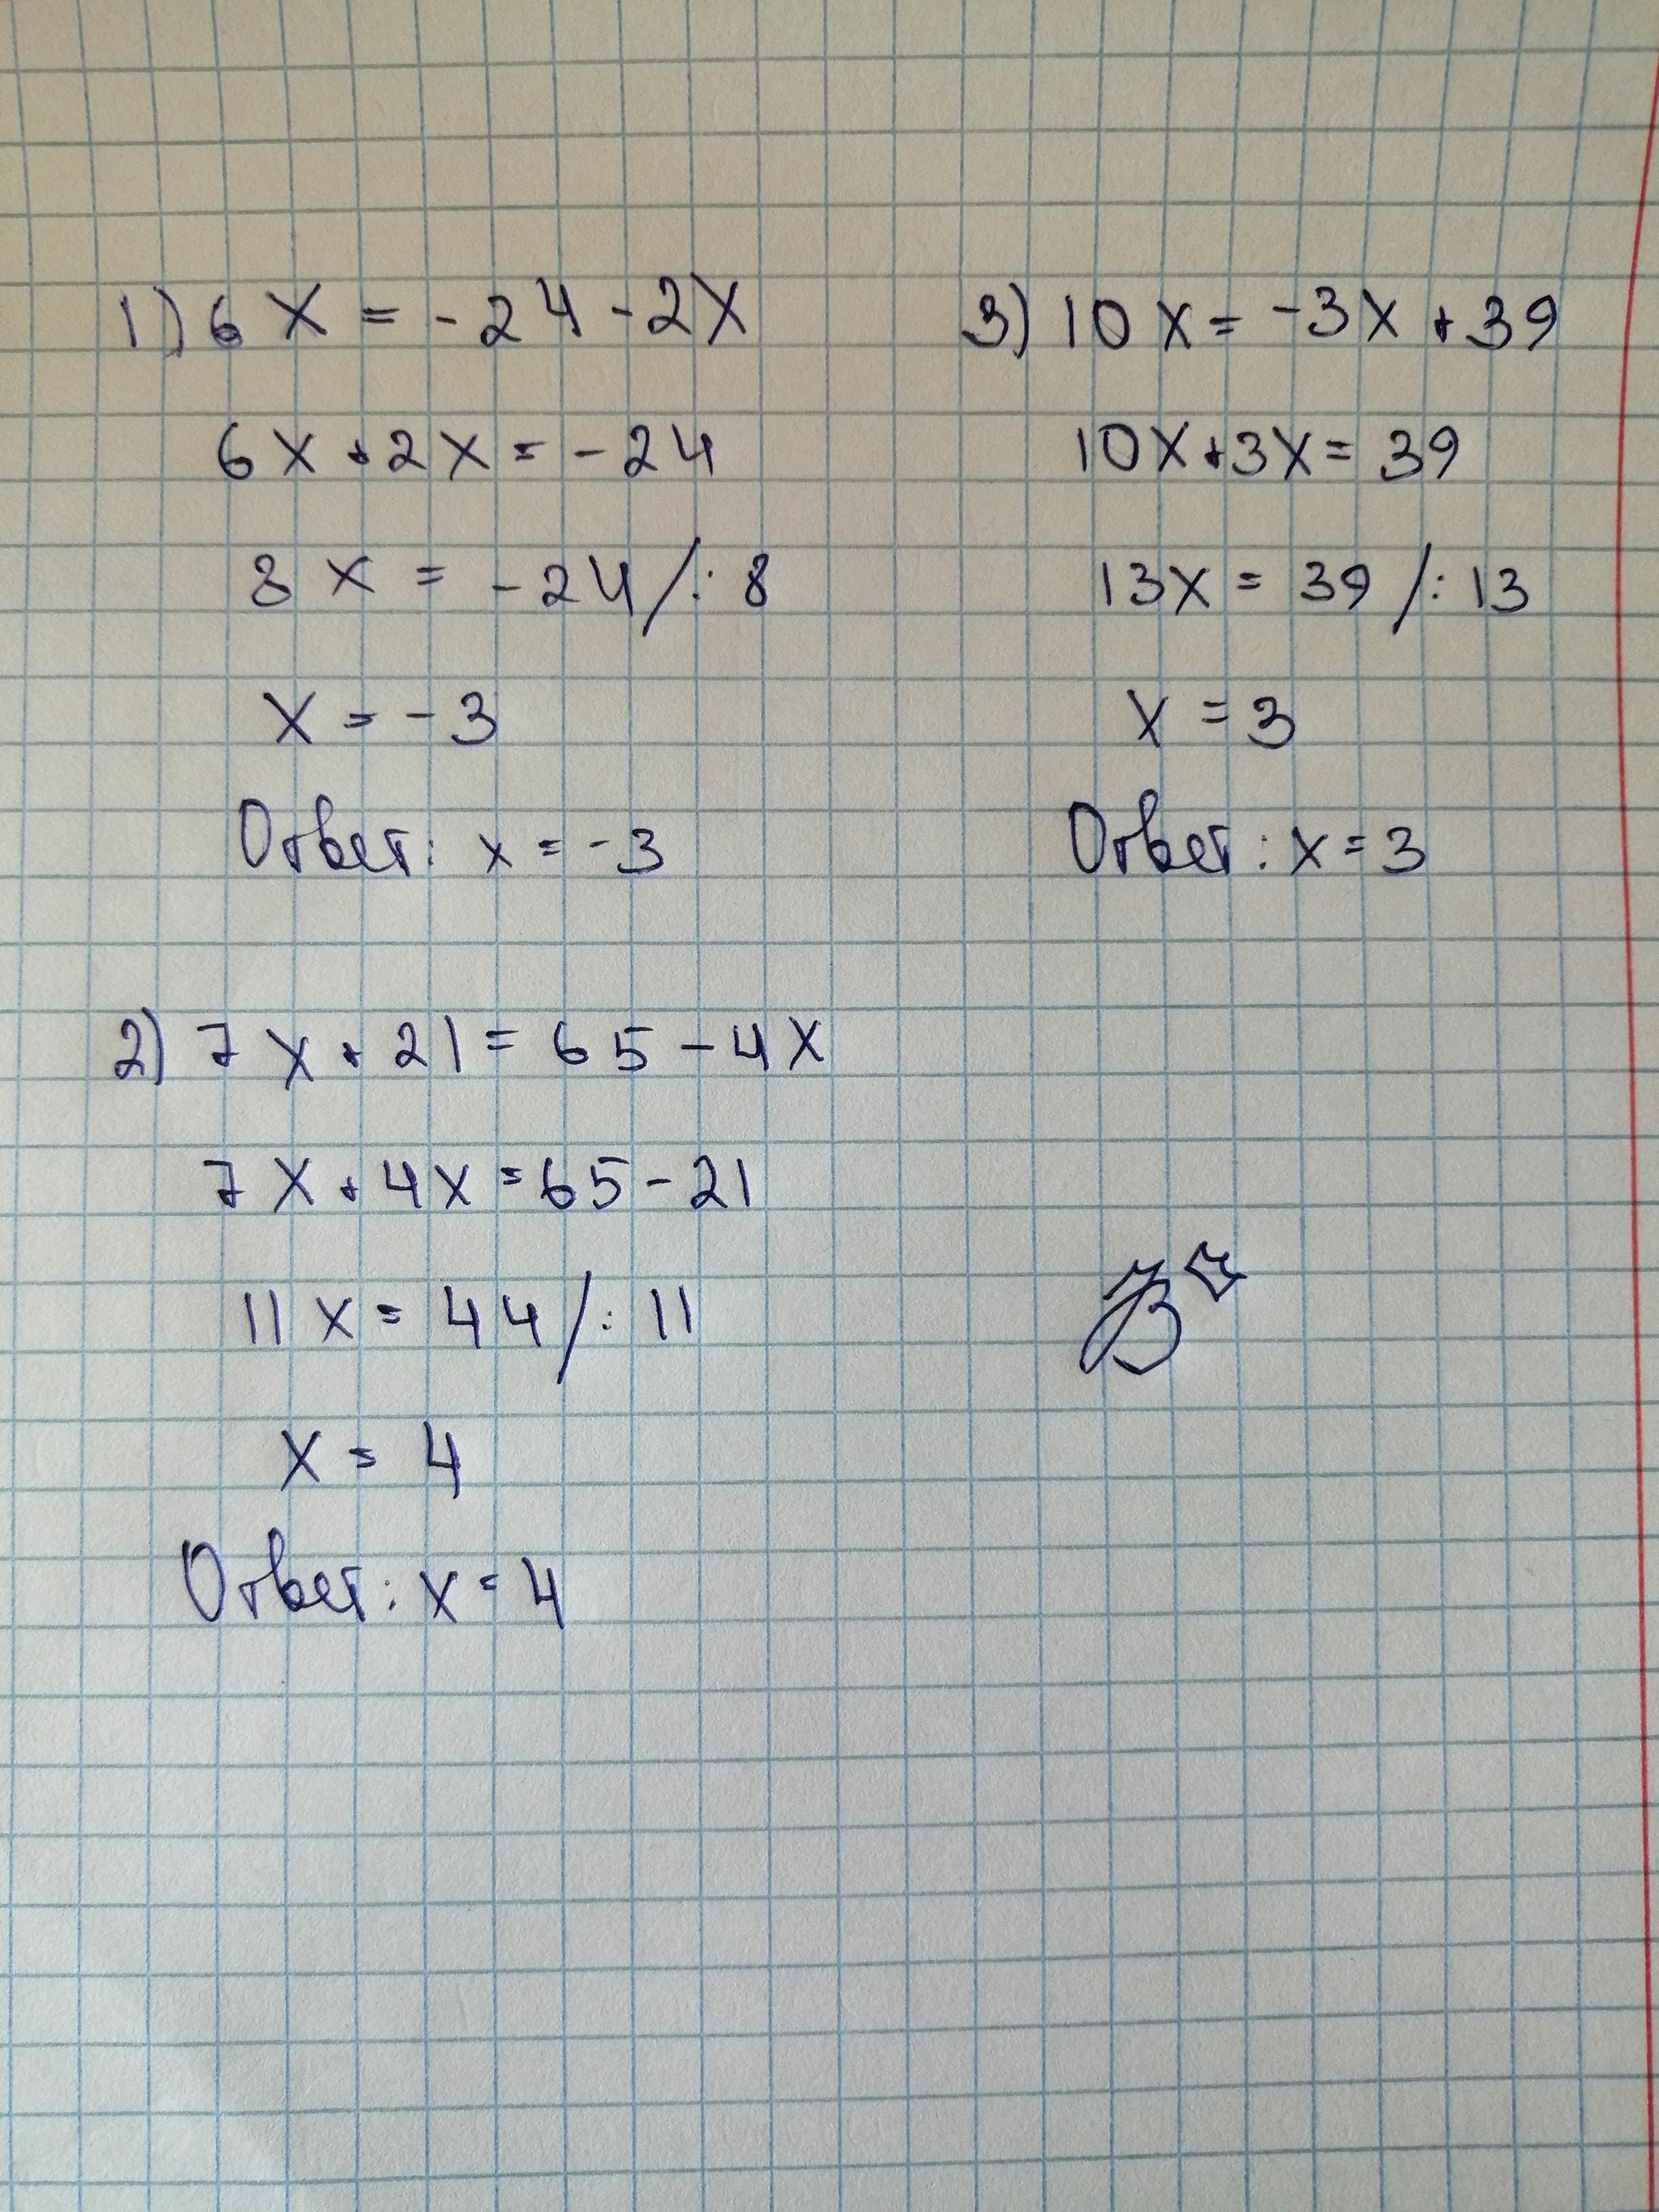 1) 6x = -24 - 2x
6x + 2x = -24
8x = -24 /: 8
x = -3
Ответ: x = -3
2) 7x + 21 = 65 - 4x
7x + 4x = 65 - 21
11x = 44 /: 11
x = 4
Ответ: x = 4
3) 10x = -3x + 39
10x + 3x = 39
13x = 39 /: 13
x = 3
Ответ: x = 3